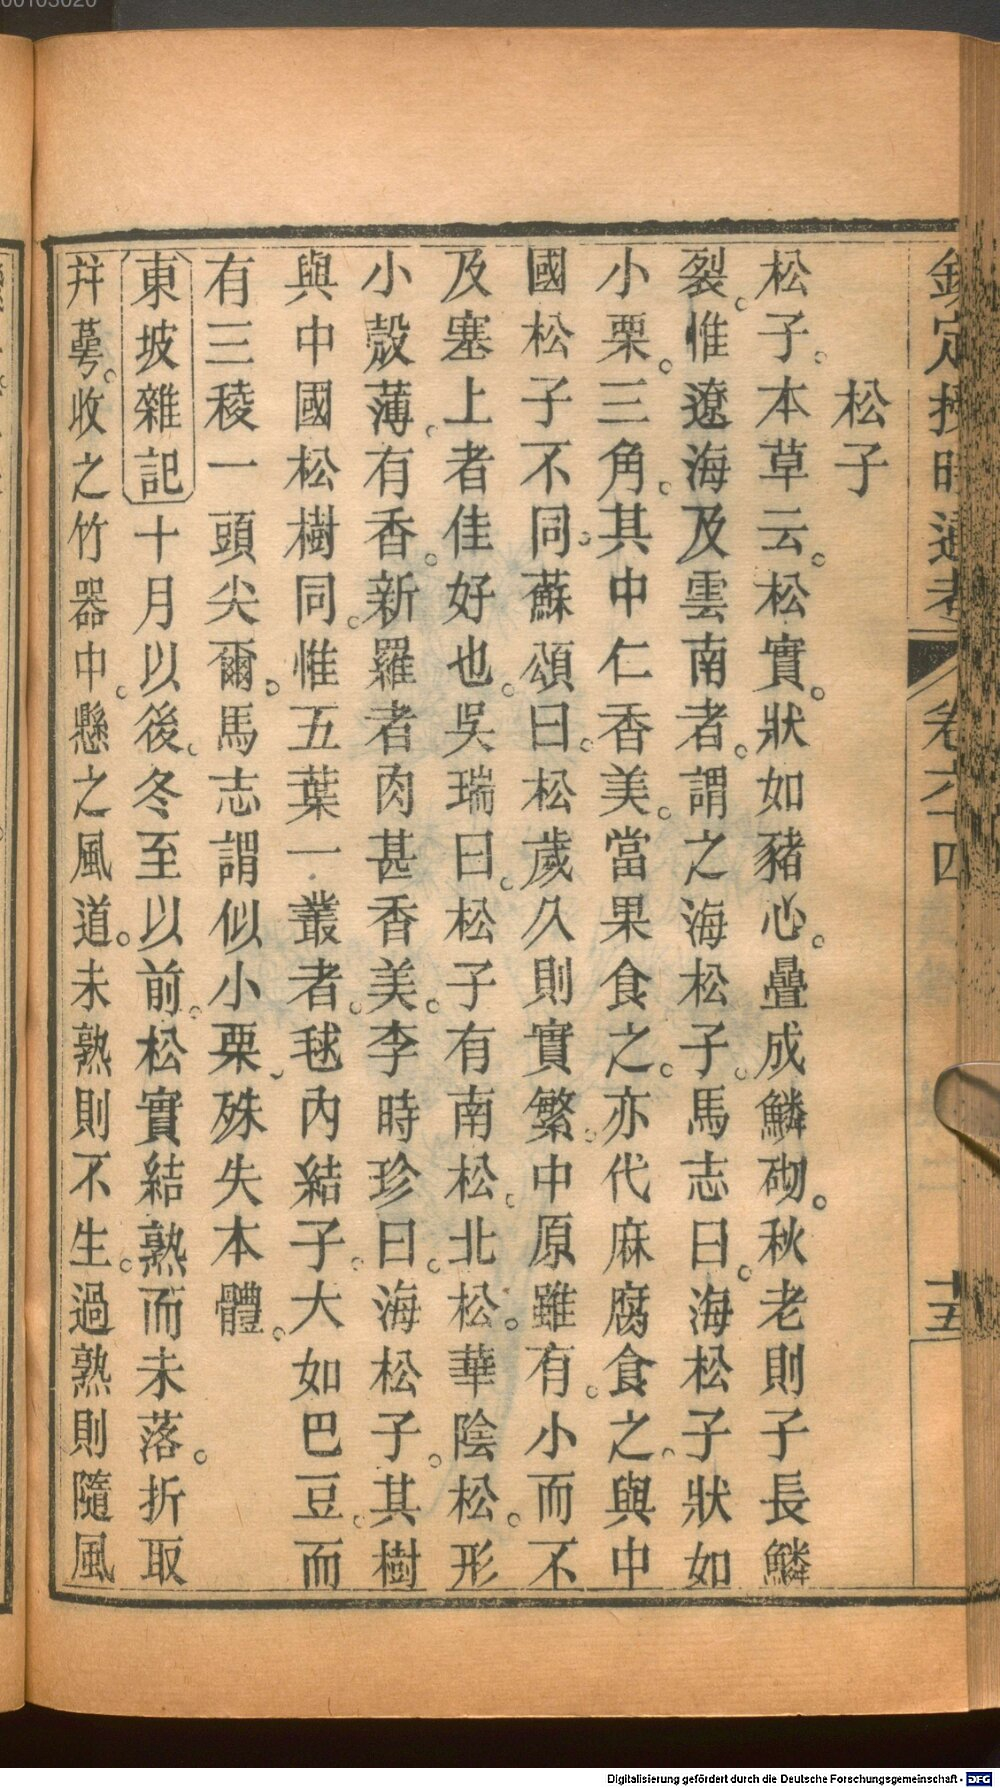 欽定授時通考 卷六十四 十五
松子
松子。本草云。松實。狀如豬心。疊成鱗砌。秋老則子長鱗
裂。惟遼海及雲南者。謂之海松子。馬志曰。海松子狀如
小栗。三角。其中仁香美。當果食之。亦代麻腐食之。與中
國松子不同。蘇頌曰。松歲久則實繁。中原雖有。小而不
及塞上者佳好也。吳瑞曰。松子有南松。北松。華陰松。形
小殼薄。有香。新羅者肉甚香美。李時珍曰。海松子。其樹
與中國松樹同。惟五葉一叢者。毬內結子。大如巴豆。而
有三稜一頭尖爾。馬志謂似小栗。殊失本體。
東坡雜記十月以後。冬至以前。松實結熟而未落。折取
幷萼。收之竹器中。懸之風道。未熟則不生。過熟則隨風
00103020
Digitalisierung gefördert durch die Deutsche Forschungsgemeinschaft - DFG